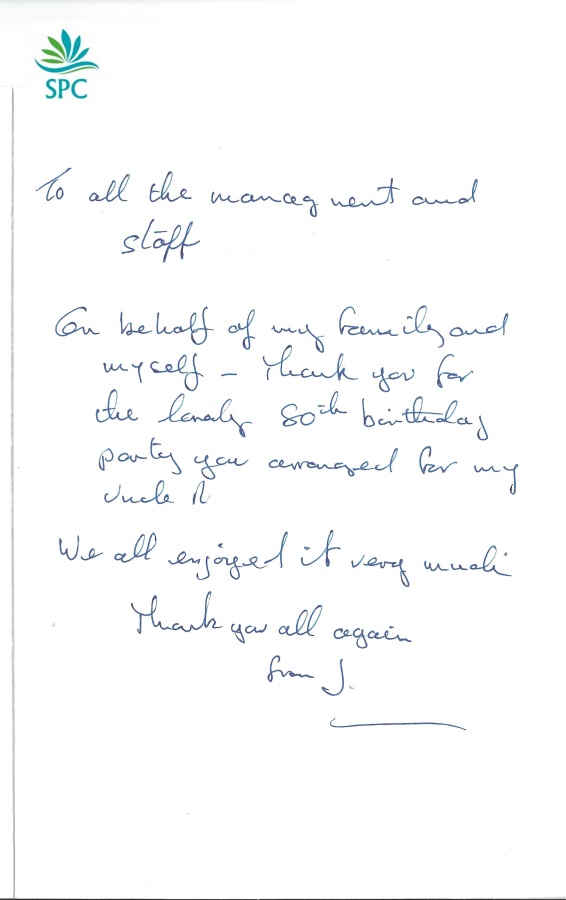 SPC
To all the managment and
staff
On behalf of my family and
myself – Thank you for
the lovely 80th birthday
party you arranged for my
Uncle R
We all enjoyed it very much
Thank you all again
from J.